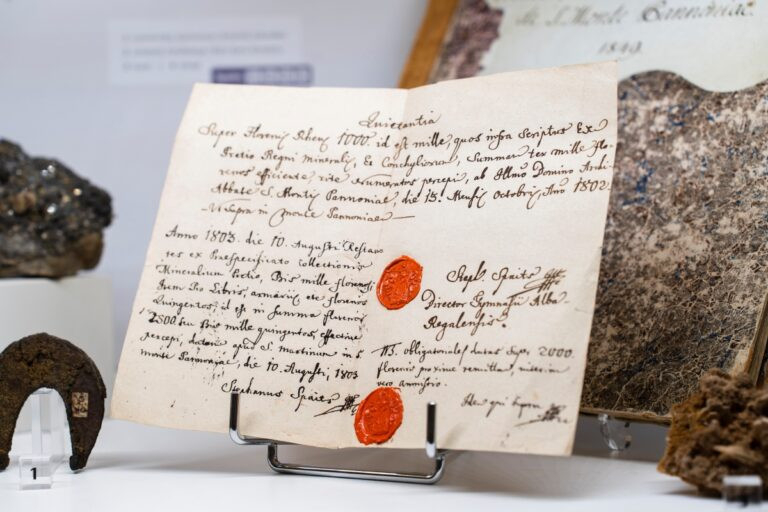 de S. Monte Pannoniae
1849.
Quietantia
Super Florenis Rhen: 1000. id est mille, quos infra Scriptus Ex
Pretio Regni mineralis, & Conchyliorum, Summam ter mille Flo-
renos efficiente rite Enumeratos percepi, ab Illmo Domino Archi-
Abbate S. Montis Pannoniae, die 15. Mensis Octobris, Ano 1802.
Ut Supra in monte Pannoniae
Anno 1803. die 10. Augusti
tes ex Praespecificato collectionis
Mineralium Pretio, Bis mille florenos;
Item Pro Libris, armariis, etc florenos
Quingentos; id est in Summa florenos
2500 seu Bis mille quingentos effective
percepi, datum apud S. Martinum in S.
monte Pannoniae, die 10. Augusti, 1803
Stephanus Spaits
Steph Spaits
Director Gymnasii Alba
Regalensis.
obligatoriales datas Super 2000.
florenis proxime remittam,
vero
Idem qui Supra
1